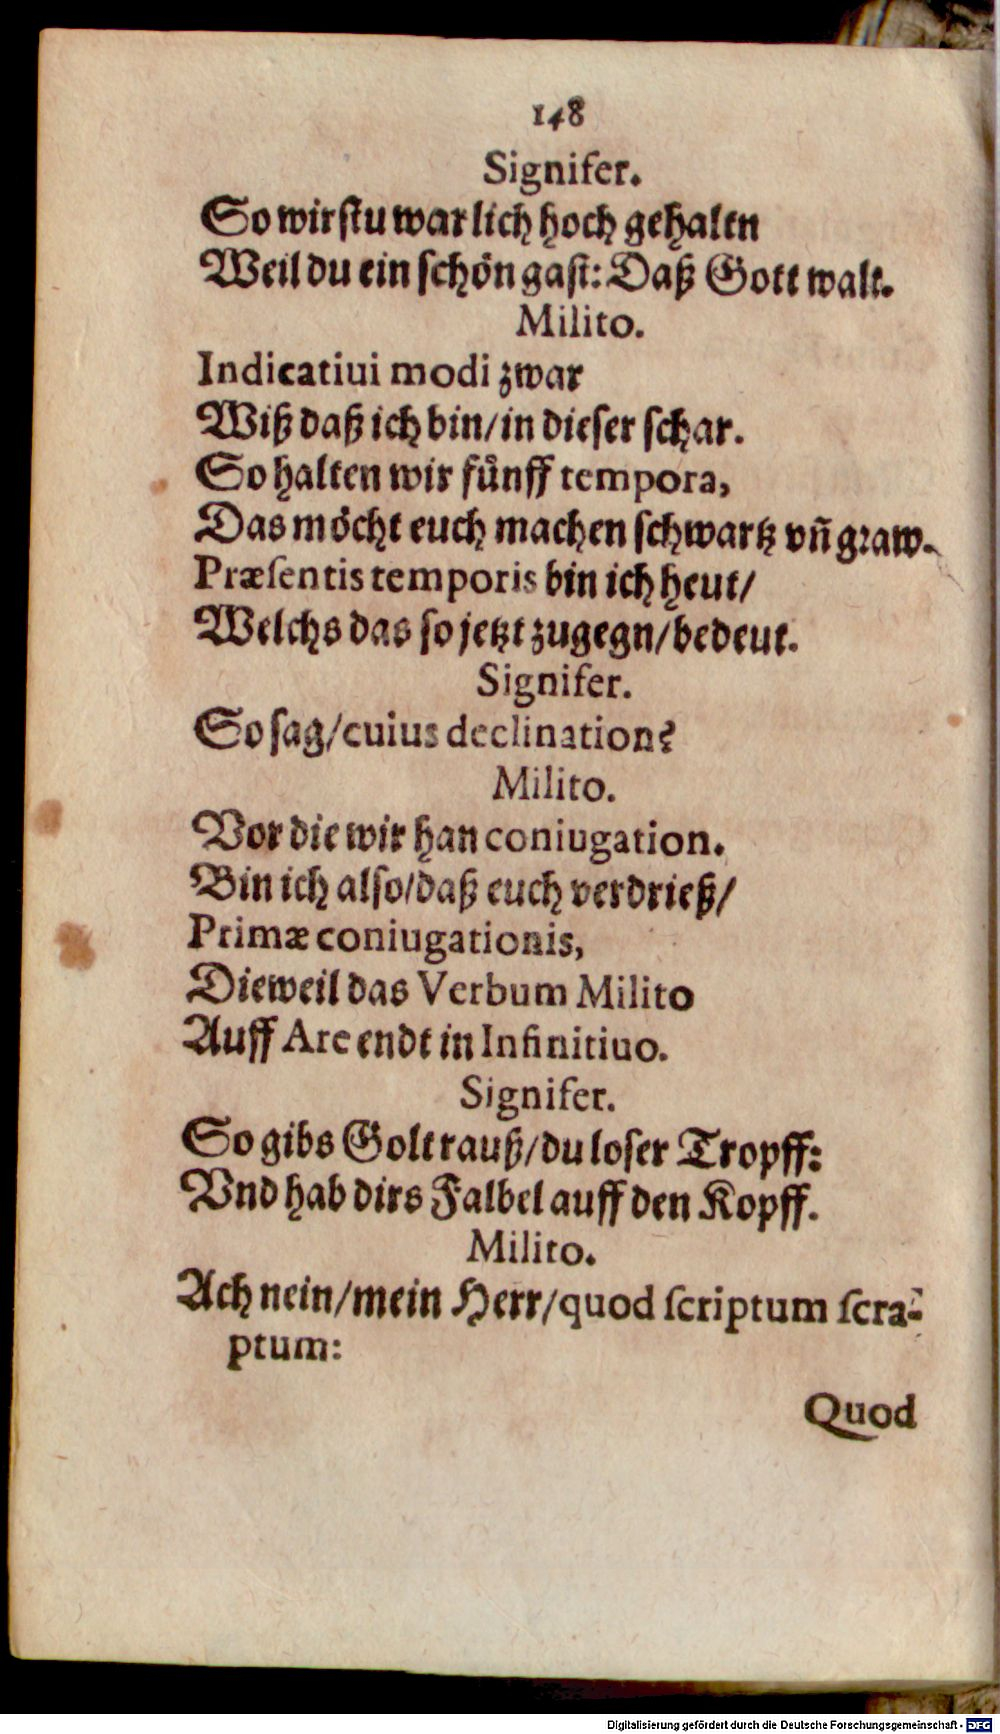 148
Signifer.
So wirstu warlich hoch gehaltn
Weil du ein schön gast: Daß Gott walt.
Milito.
Indicatiui modi zwar
Wiß daß ich bin/in dieser schar.
So halten wir fuͤnff tempora,
Das moͤcht euch machen schwartz vñ graw.
Præsentis temporis bin ich heut/
Welchs das so jetzt zugegn/bedeut.
Signifer.
So sag/cuius declination?
Milito.
Vor die wir han coniugation.
Bin ich also/daß euch verdrieß/
Primæ coniugationis,
Dieweil das Verbum Milito
Auff Are endt in Infinitiuo.
Signifer.
So gibs Golt rauß/du loser Tropff:
Vnd hab dirs Falbel auff den Kopff.
Milito.
Ach nein/mein Herr/quod scriptum scra-
ptum:
Quod
Digitalisierung gefördert durch die Deutsche Forschungsgemeinschaft - DFG